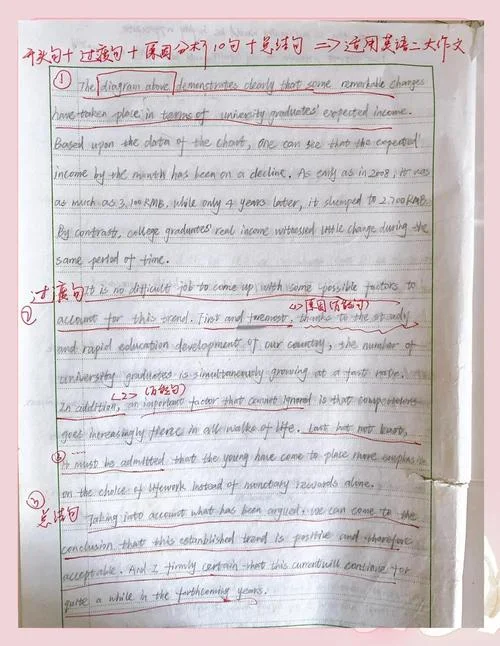 开头句+过渡句+原因分析10句+总结句 => 适用英语二大作文
① The diagram above demonstrates clearly that some remarkable changes
have taken place in terms of university graduates' expected income.
Based upon the data of the chart, one can see that the expected
income by the month has been on a decline. As early as in 2008, it was
as much as 3,100RMB, while only 4 years later, it slumped to 2.700RMB.
By contrast, college graduates' real income witnessed little change during the
same period of time.
过渡句 It is no difficult job to come up with some possible factors to
<1>原因(万能句)
② account for this trend. First and foremost, thanks to the steady
and rapid education development of our country, the number of
university graduates is simultaneously growing at a fast rate.
<2> (万能句)
In addition, an important factor that cannot ignored is that
goes increasingly fierce in all walks of life. Last but not least,
it must be admitted that the young have come to place more emphasis
on the choice of lifework instead of monetary rewards alone.
③ 总结句 Taking into account what has been argued, we can come to the
conclusion that this established trend is positive and therefore
acceptable. And I firmly certain that this current will continue for
quite a while in the forthcoming years.